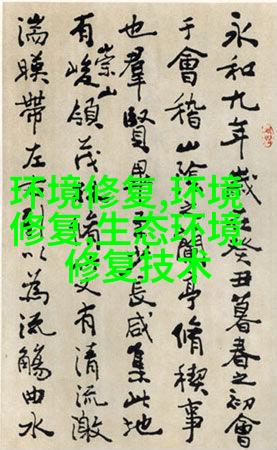 环境修复,环境
修复,生态环境
修复技术
永和九年歲在癸丑暮春之初會
于會稽山陰之蘭亭脩稧事
也羣賢畢長咸集此地
有崇山峻領茂又有清流激
湍暎帶左以為流觴曲水